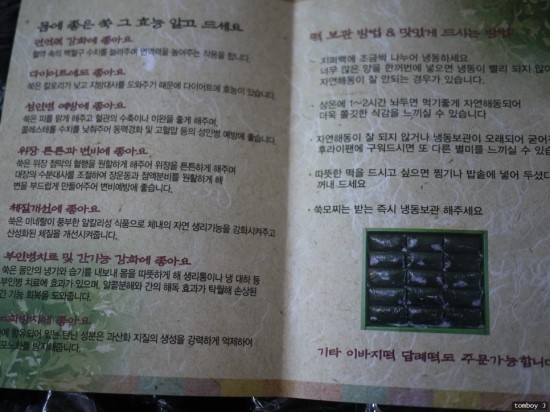 몸에 좋은 쑥 그 효능 알고 드세요
면역력 강화에 좋아요
혈액 속의 백혈구 수치를 늘려주며 면역력을 높여주는 작용을 합니다.
다이어트에도 좋아요
쑥은 칼로리가 낮고 지방대사를 도와주기 때문에 다이어트에 효능이 있습니다.
성인병 예방에 좋아요
쑥은 피를 맑게 해주고 혈관의 수축이나 이완을 좋게 해주며,
콜레스테롤 수치를 낮춰주어 동맥경화 및 고혈압 등의 성인병 예방에 좋습니다.
위장 튼튼과 변비에 좋아요
쑥은 위장 점막의 혈행을 원할하게 해주어 위장을 튼튼하게 해주며
대장의 수분대사를 조절하여 장운동과 점액분비를 원할하게 해
변을 부드럽게 만들어주어 변비예방에 좋습니다.
체질개선에 좋아요
쑥은 미네랄이 풍부한 알칼리성 식품으로 체내의 자연 생리기능을 강화시켜주고
산성화된 체질을 개선시켜줍니다.
부인병치료 및 간기능 강화에 좋아요
쑥은 몸안의 냉기와 습기를 내보내 몸을 따뜻하게 해 생리통이나 냉 대하 등
부인병 치료에 효과가 있으며, 알콜분해와 간의 해독 효과가 탁월해 손상된
간 기능 회복을 도와줍니다.
좋아요
함유되어 있는 탄닌 성분은 과산화 지질의 생성을 강력하게 억제하여
방지해줍니다.
떡 보관 방법 & 맛있게 드시는 방법
· 지퍼백에 조금씩 나누어 냉동하세요
너무 많은 양을 한꺼번에 넣으면 냉동이 빨리 되지 않
자연해동이 잘 안되는 경우가 있습니다.
· 상온에 1~2시간 놔두면 먹기좋게 자연해동되어
더욱 쫄깃한 식감을 느끼실 수 있습니다
· 자연해동이 잘 되지 않거나 냉동보관이 오래되어 굳어
후라이팬에 구워드시면 또 다른 별미를 느끼실 수 있습
· 따뜻한 떡을 드시고 싶으면 찜기나 밥솥에 넣어 두셨다
꺼내 드세요
· 쑥모찌는 받는 즉시 냉동보관 해주세요
기타 이바지떡 답례떡도 주문가능합니다
tomboy J